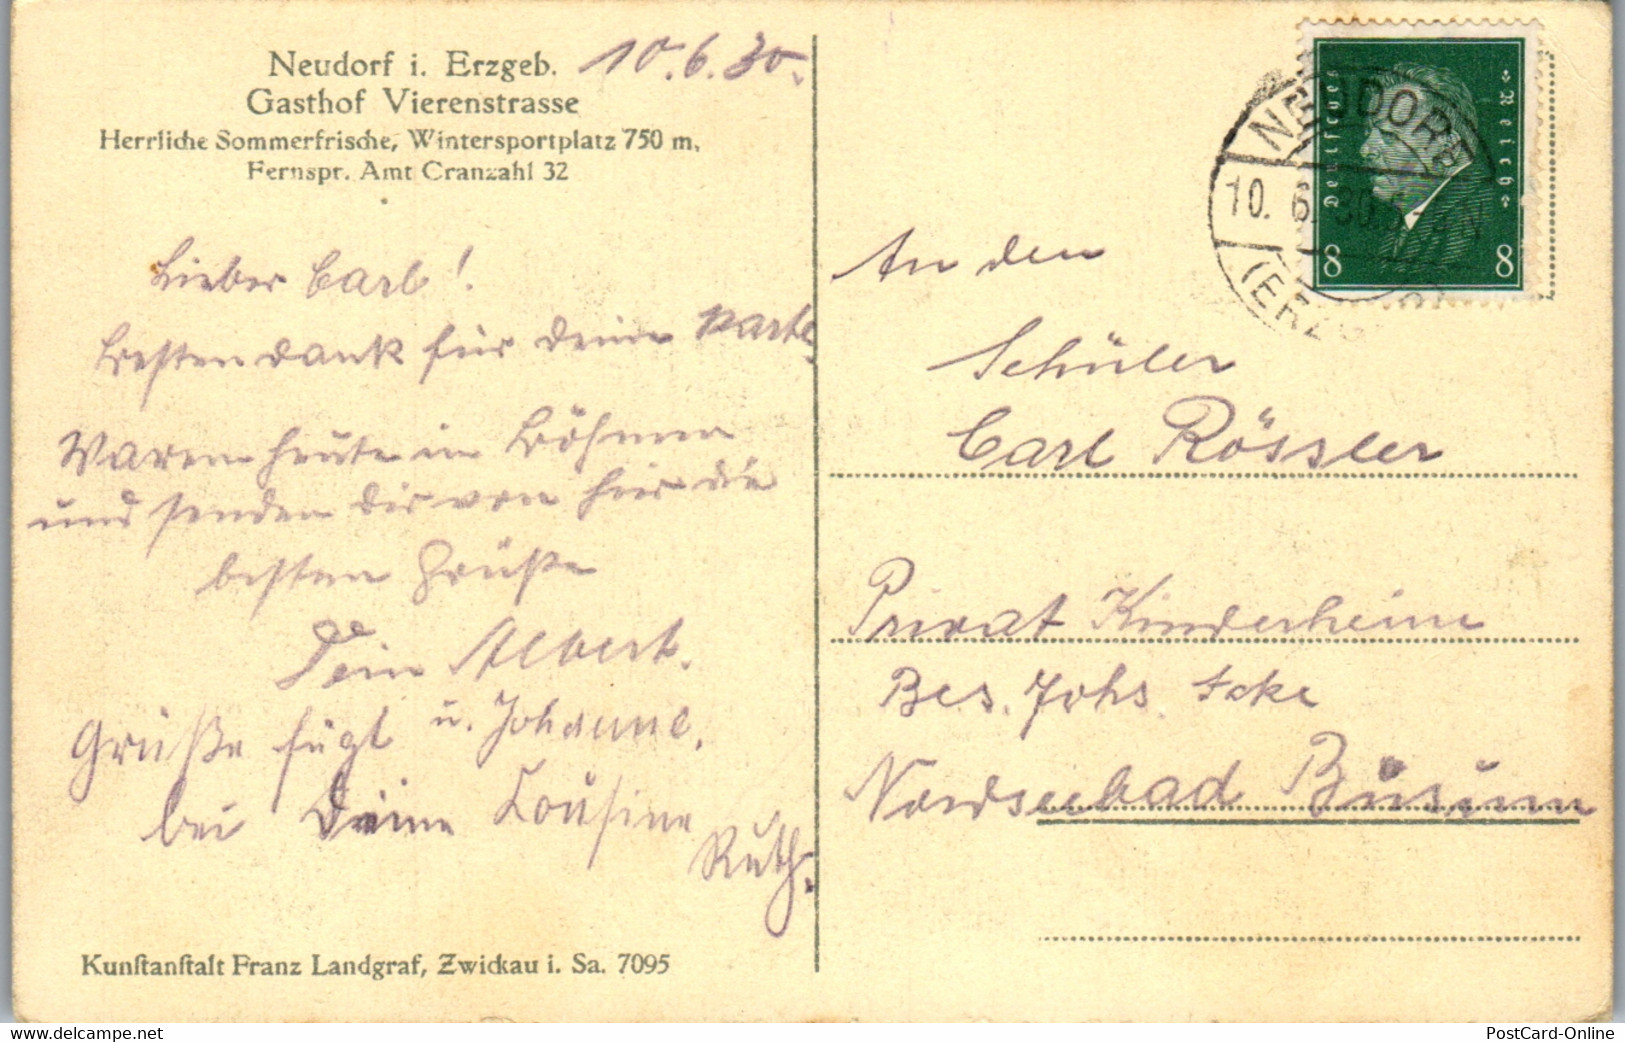 Neudorf i. Erzgeb. 10.6.30.
Gasthof Vierenstrasse
Herrliche Sommerfrische, Wintersportplatz 750 m,
Fernspr. Amt Cranzahl 32
Lieber Carl!
Besten Dank für Deine Karte.
Waren heute in Böhmen
und senden Dir von hier die
besten Grüße
Dein Albert.
u. Johanne.
Grüße fügt
bei Deine Cousine
Ruth.
Kunſtanſtalt Franz Landgraf, Zwickau i. Sa. 7095
Deutſches Reich
8 8
NEUDORF
10. 6. 30. 
(ERZG
An den
Schüler
Carl Rössler
Privat Kinderheim
Bes. Johs
Nordseebad Büsum
www.delcampe.net
PostCard-Online